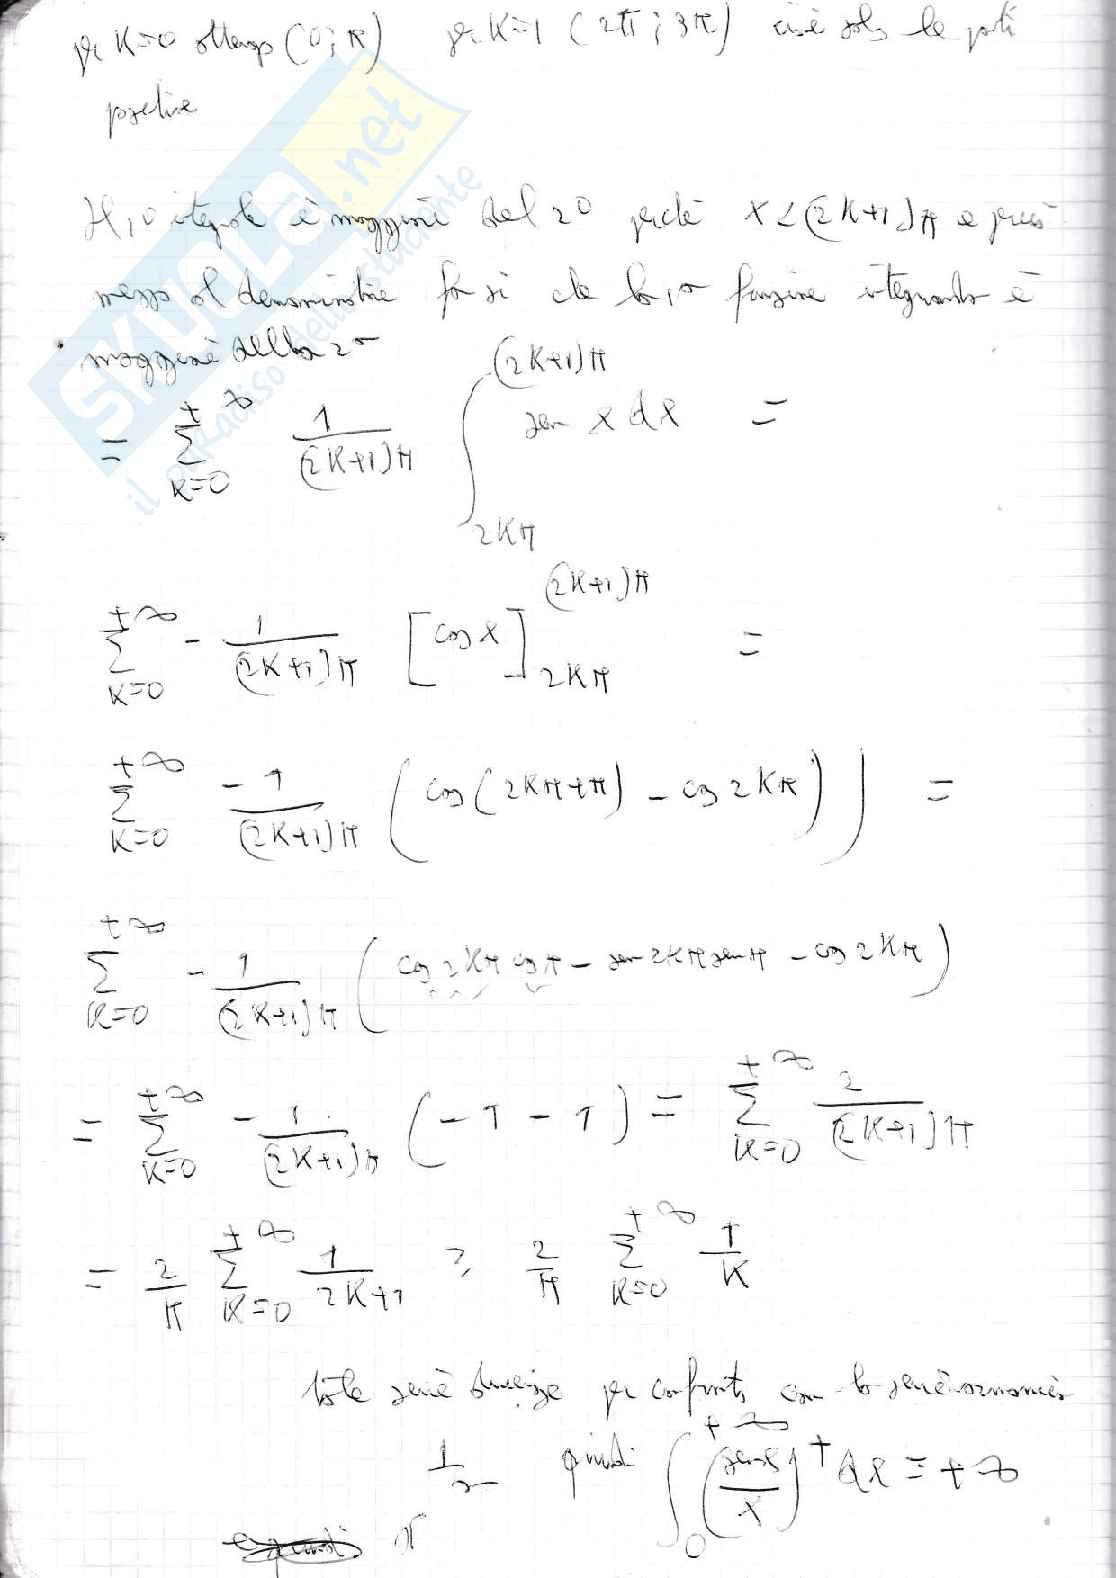 per K=0 ottengo (0; π) per K=1 (2π; 3π) cioè solo le parti
positive
Il 1° integrale è maggiore del 2° perché x < (2K+1)π e perciò
messo al denominatore fa sì che la 1ª funzione integranda è
maggiore della 2ª
= Σ_{K=0}^{+∞} 1/((2K+1)π) ∫_{2Kπ}^{(2K+1)π} sen x dx =
Σ_{K=0}^{+∞} - 1/((2K+1)π) [cos x]_{2Kπ}^{(2K+1)π} =
Σ_{K=0}^{+∞} -1/((2K+1)π) (cos(2Kπ+π) - cos 2Kπ)) =
Σ_{K=0}^{+∞} -1/((2K+1)π) (cos 2Kπ cos π - sen 2Kπ sen π - cos 2Kπ)
= Σ_{K=0}^{+∞} -1/((2K+1)π) (-1-1) = Σ_{K=0}^{+∞} 2/((2K+1)π)
= 2/π Σ_{K=0}^{+∞} 1/(2K+1) ≥ 2/π Σ_{K=0}^{+∞} 1/K
tale serie diverge per confronto con la serie armonica
1/n quindi ∫_0^{+∞} (sen x/x)^+ dx = +∞
SKUOLA.net
il paradiso dello studente